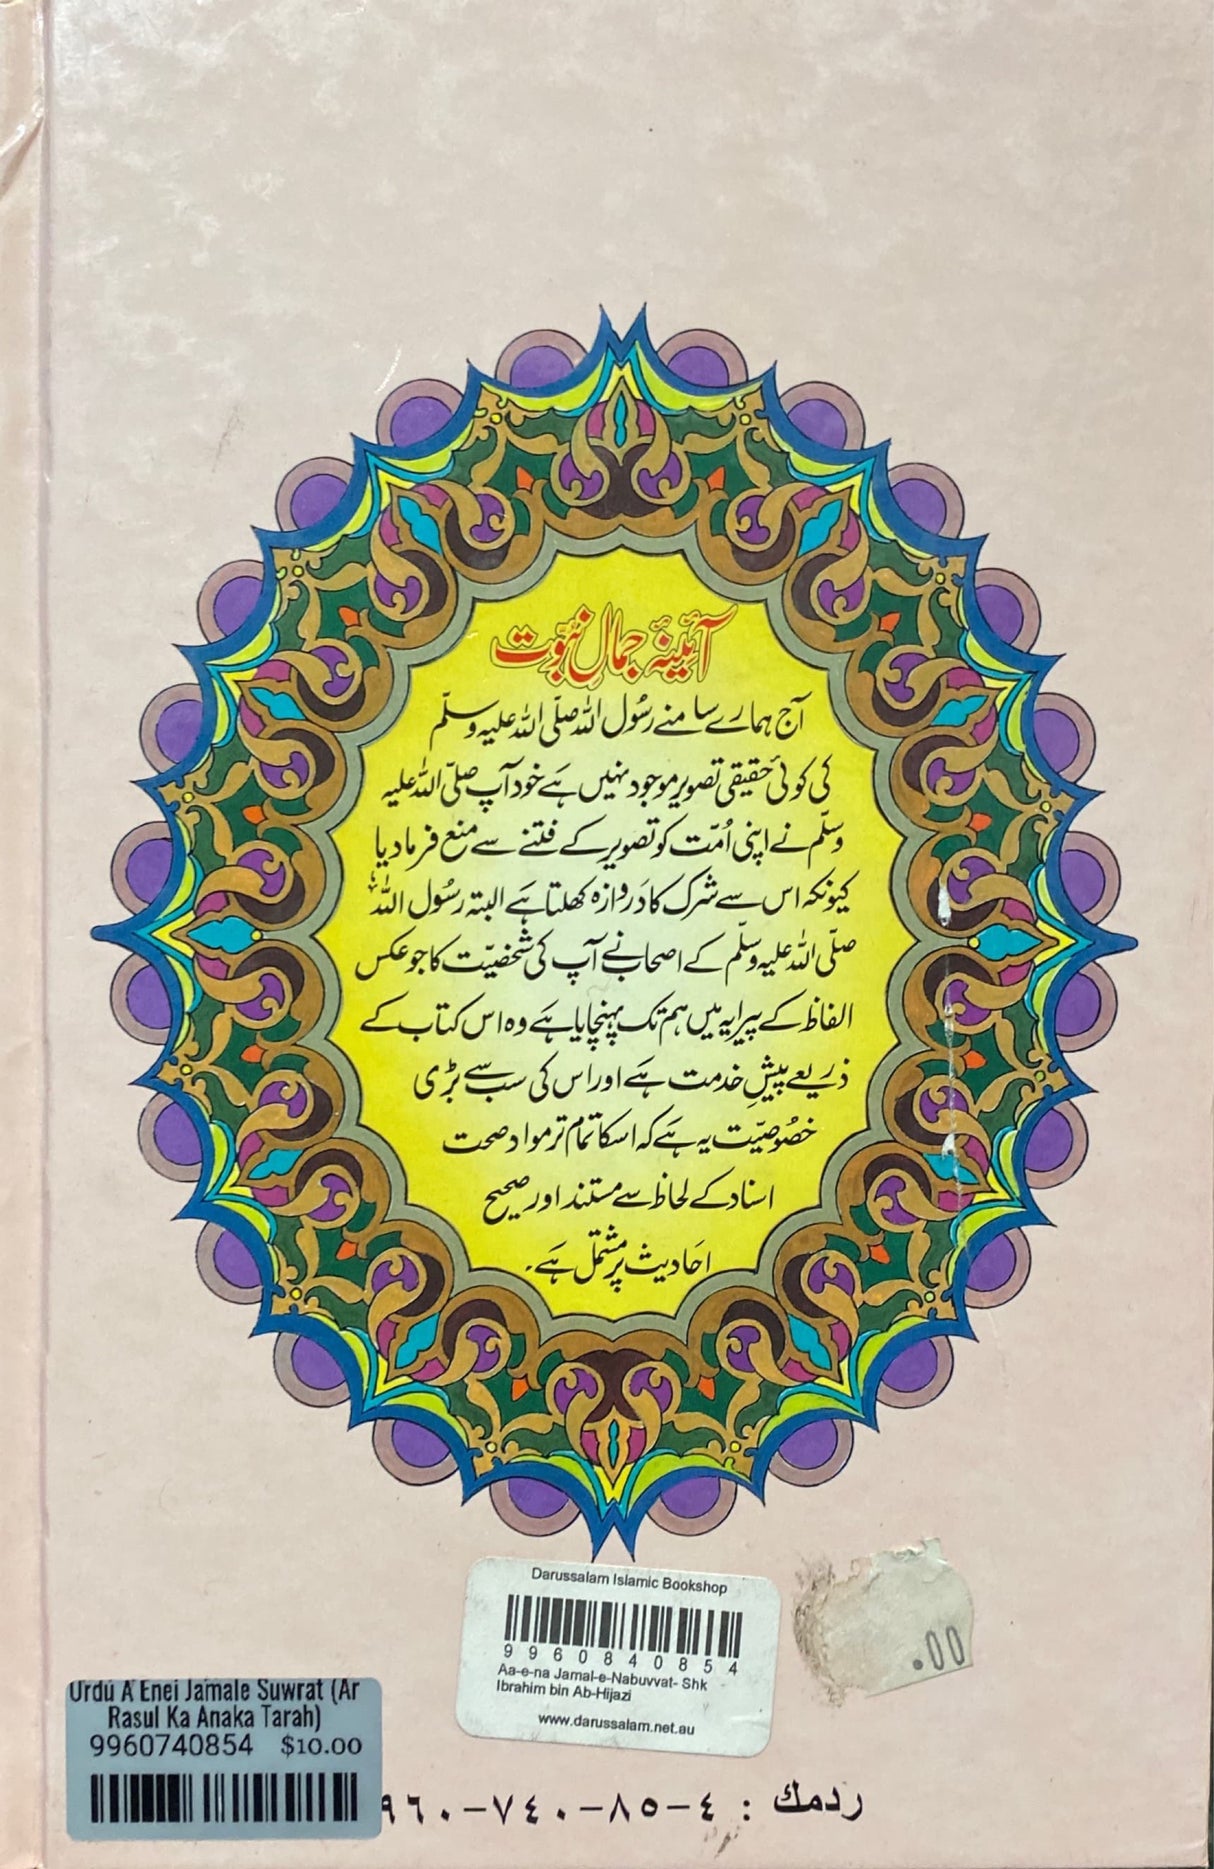 آئینۂ جمالِ نبوّت
آج ہمارے سامنے رسُول اللہ صلّی اللہ علیہ وسلّم
کی کوئی حقیقی تصویر موجود نہیں ہے خود آپ صلّی اللہ علیہ
وسلّم نے اپنی اُمّت کو تصویر کے فتنے سے منع فرمادیا
کیونکہ اس سے شرک کا دَروازہ کھلتا ہے البتہ رسُول اللہ
صلّی اللہ علیہ وسلّم کے اصحاب نے آپ کی شخصیّت کا جو عکس
الفاظ کے پیرایہ میں ہم تک پہنچایا ہے وہ اس کتاب کے
ذریعے پیشِ خدمت ہے اور اس کی سب سے بڑی
خصُوصیّت یہ ہے کہ اسکا تمام تر مواد صحت
اسناد کے لحاظ سے مستند اور صحیح
احَادیث پر مشتمل ہے.
Darussalam Islamic Bookshop
9960840854
Aa-e-na Jamal-e-Nabuvvat- Shk
Ibrahim bin Ab-Hijazi
www.darussalam.net.au
.00
Urdu A'Enei Jamale Suwrat (Ar
Rasul Ka Anaka Tarah)
9960740854 $10.00
ردمك : ٤-٨٥-٧٤٠-٩٦٠